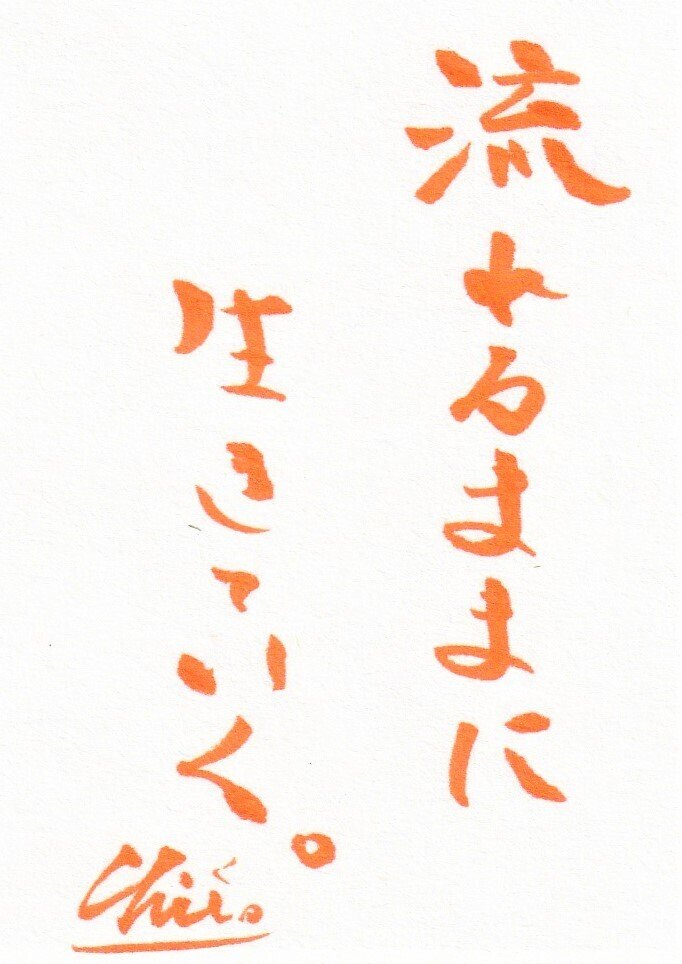 流れるままに
生きていく。
Chie.